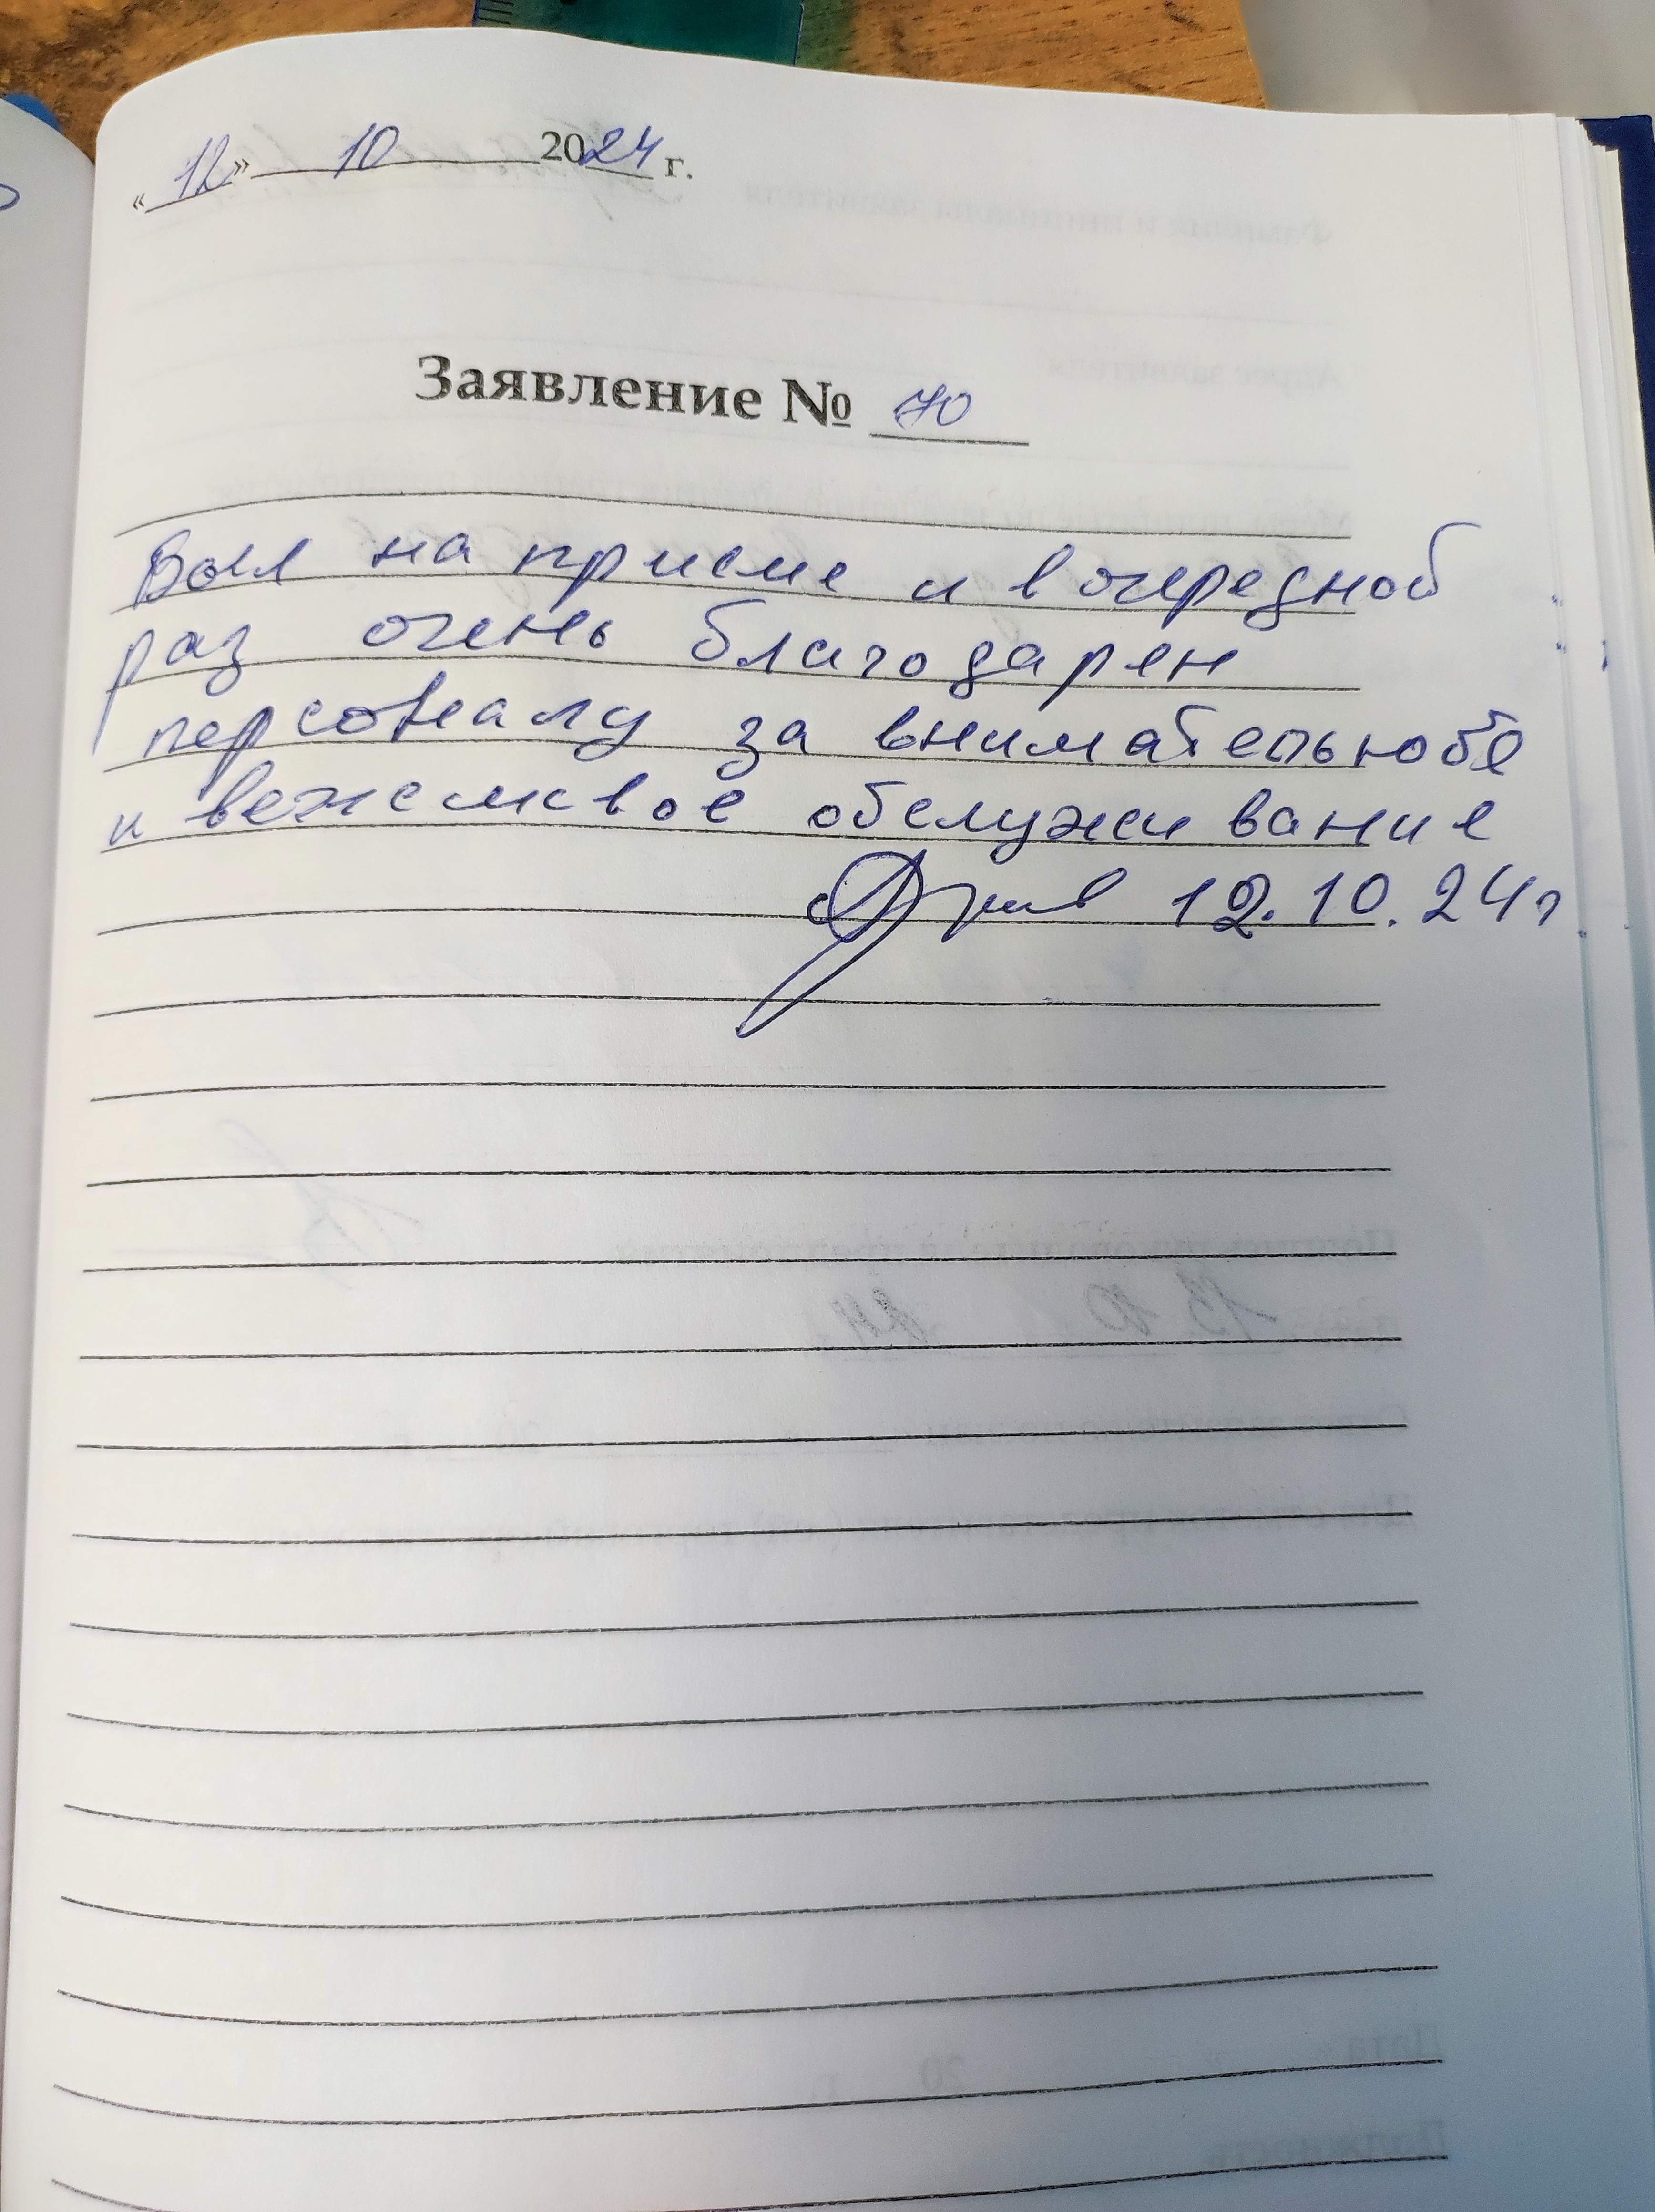 «12» 10 2024 г.
Заявление № 70
Был на приеме и в очередной
раз очень благодарен
персоналу за внимательное
и вежливое обслуживание
12.10.24г